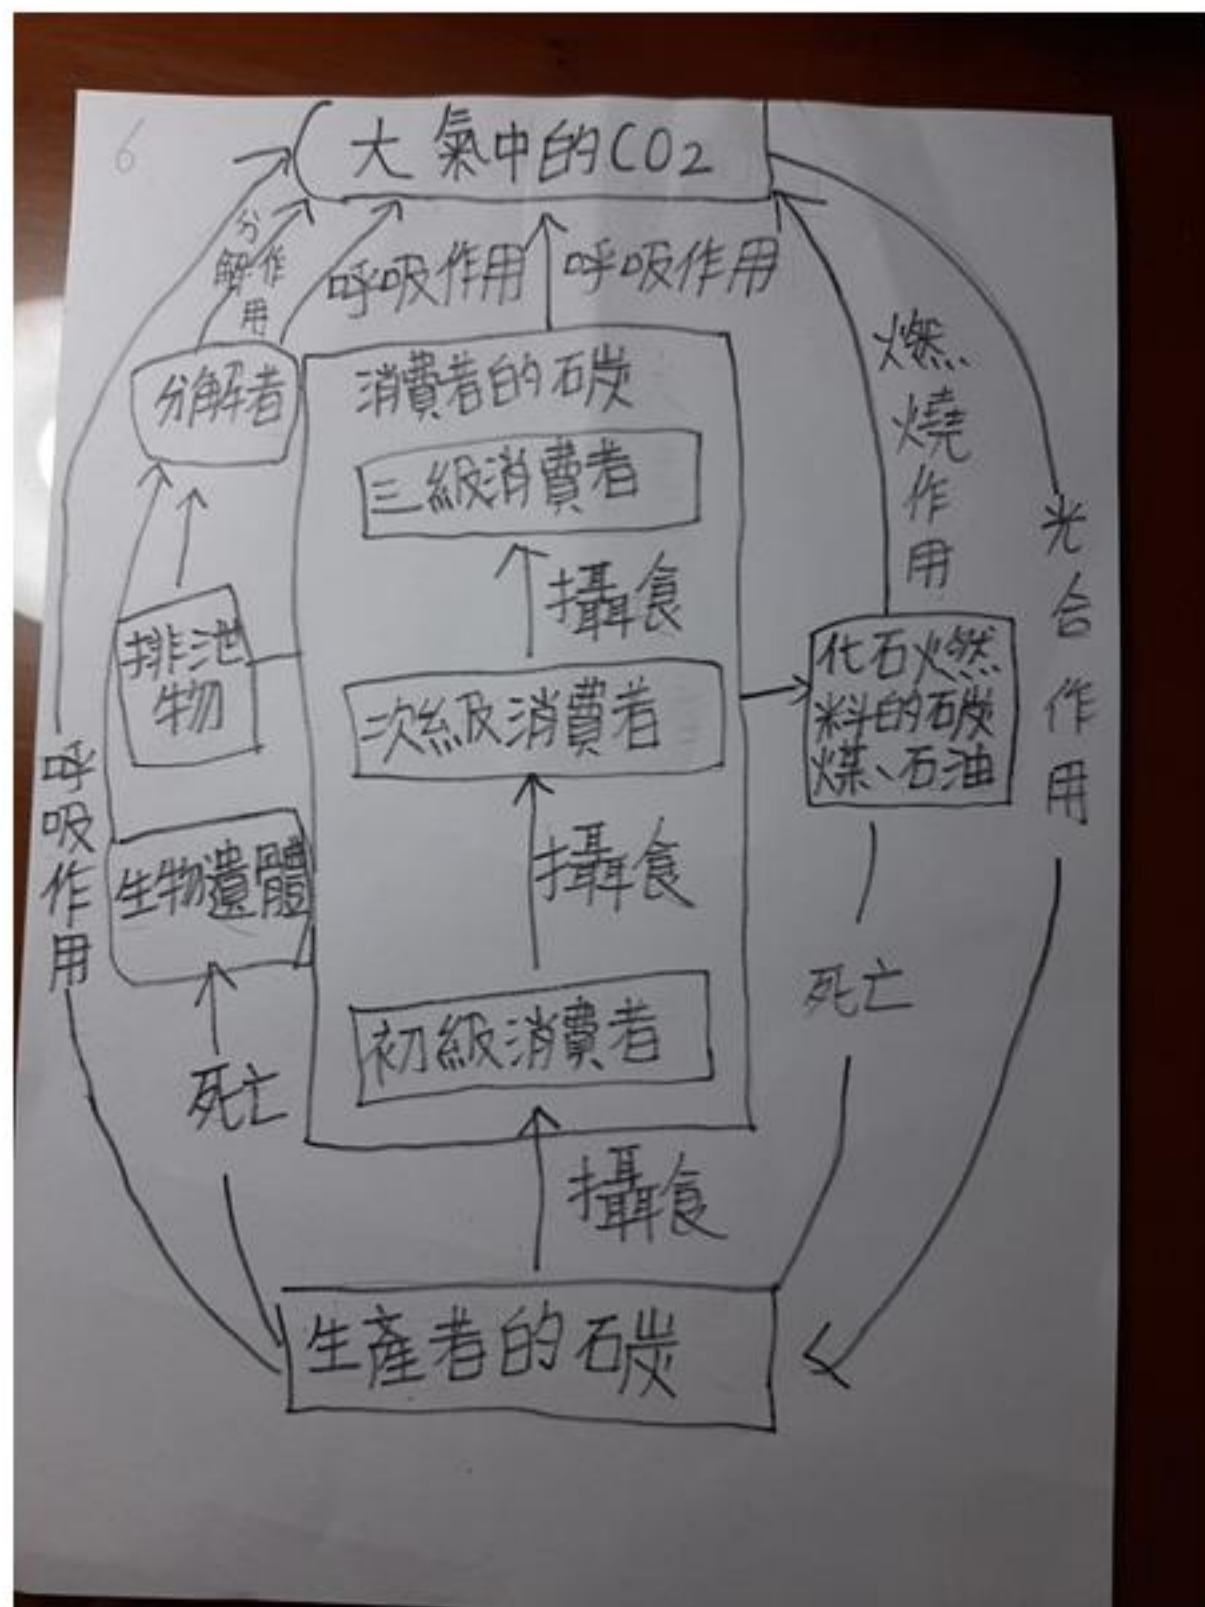 6
大氣中的CO2
分解作用
呼吸作用
呼吸作用
燃燒作用
光合作用
分解者
消費者的碳
三級消費者
攝食
排泄物
次級消費者
化石燃
料的碳
煤、石油
呼吸作用
生物遺體
攝食
死亡
初級消費者
死亡
攝食
生產者的碳